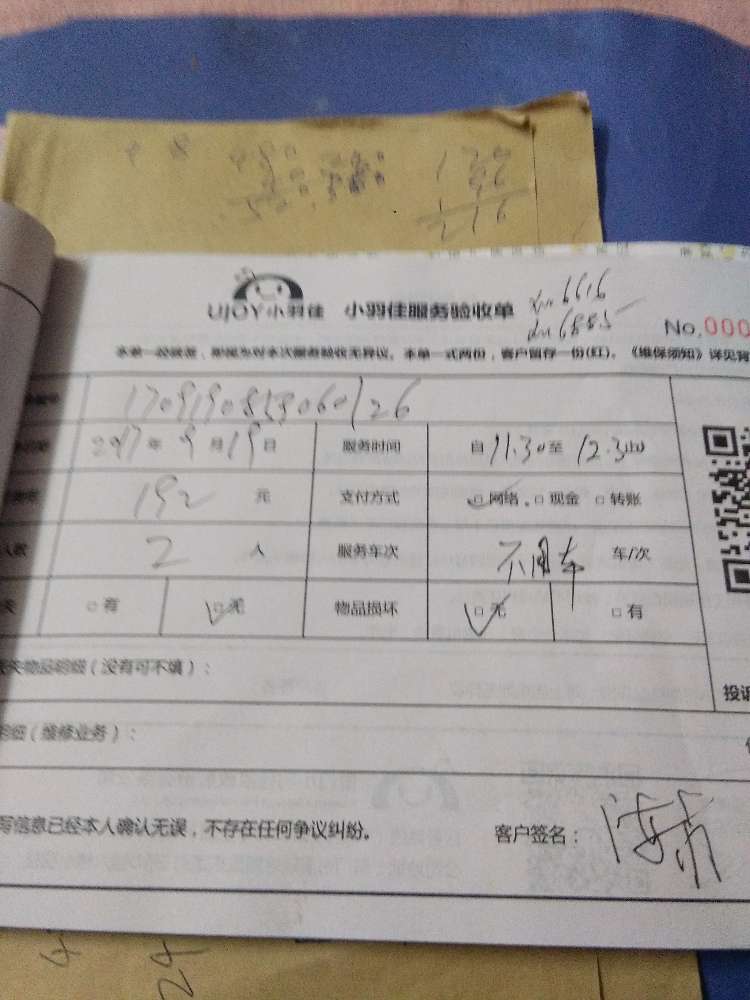 216
UJOY小羽佳 小羽佳服务验收单
6616
6885
No.000
本单一经签滋，即视为对本次服务验收无异议。本单一式两份，客户留存一份(红)。《维保须知》详见背
1709190859060126
2017年 9月19日 服务时间 自11.30至12.30
192 元 支付方式 □网络 □现金 □转账
人数 2 人 服务车次 不用车 车/次
失 □有 □无 物品损坏 □无 □有
失物品明细（没有可不填）：
投诉
明细（维修业务）：
写信息已经本人确认无误，不存在任何争议纠纷。 客户签名：